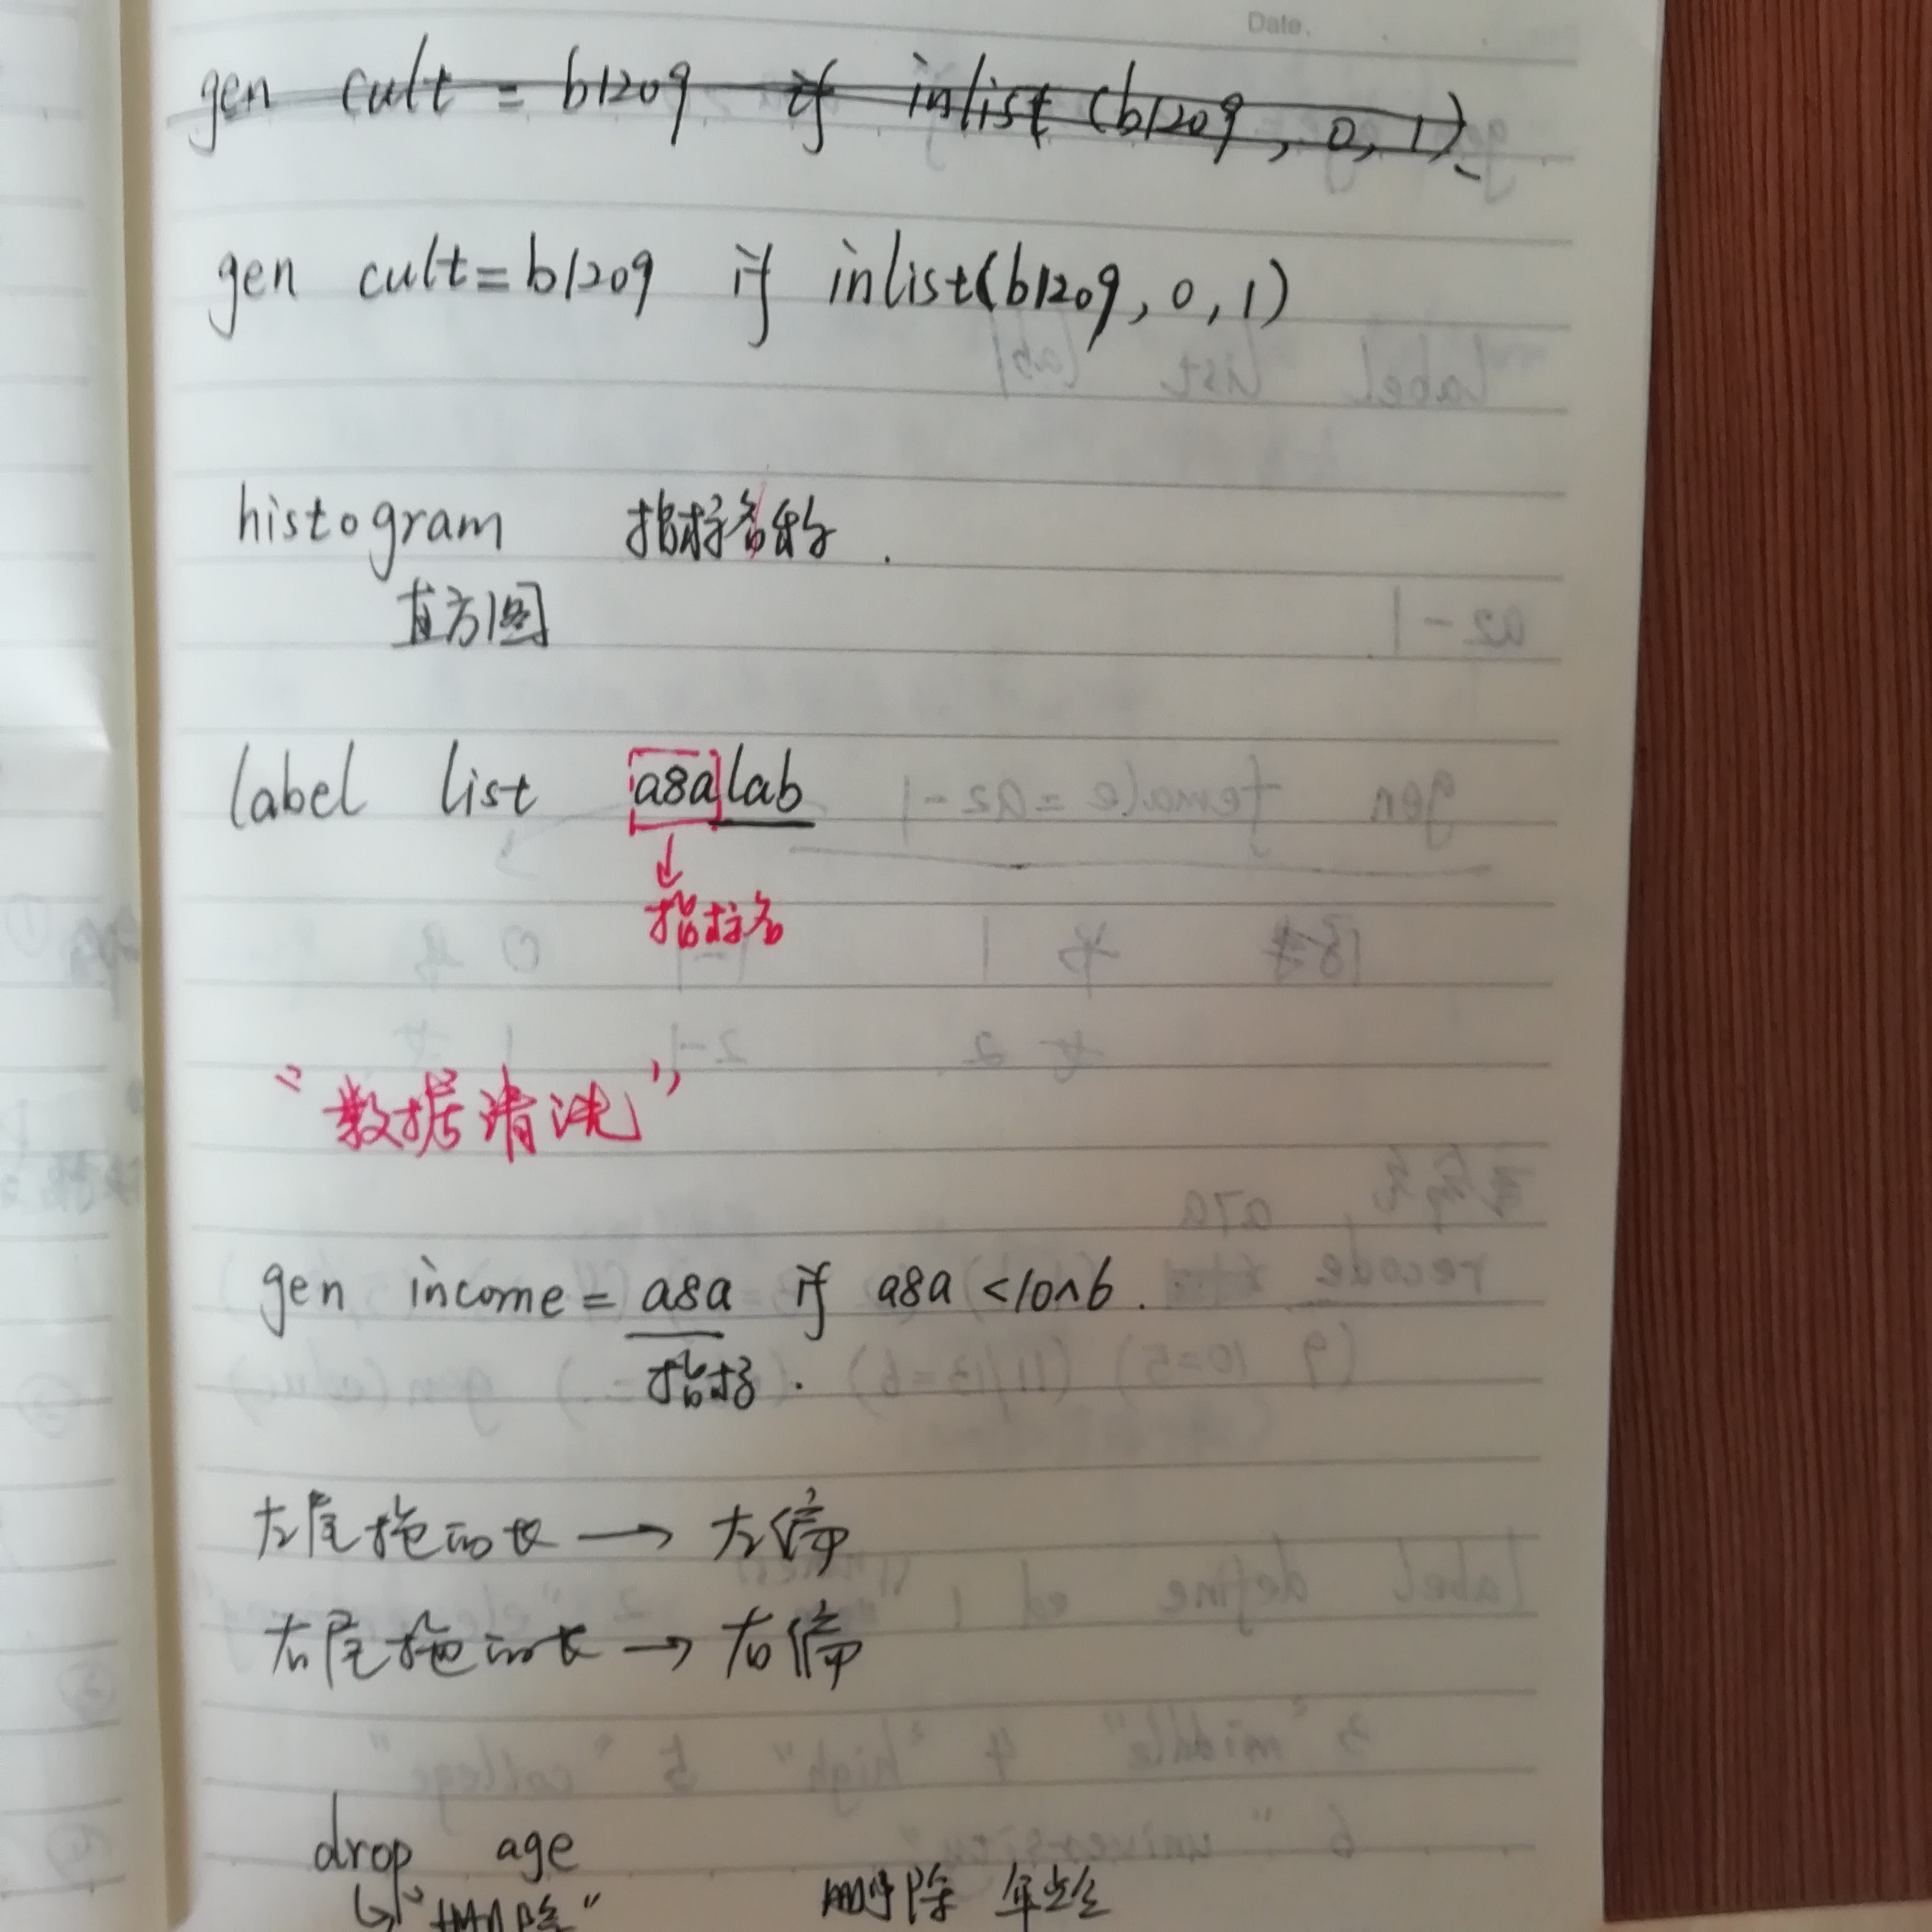 Date.
gen cult = b1209 if inlist (b1209, 0, 1)
gen cult=b1209 if inlist(b1209, 0, 1)
histogram 指标名称.
直方图
label list a8alab
指标名
"数据清洗"
gen income = a8a if a8a <10^6.
指标.
左尾拖的长 → 左偏
右尾拖的长 → 右偏
drop age
删除 年龄